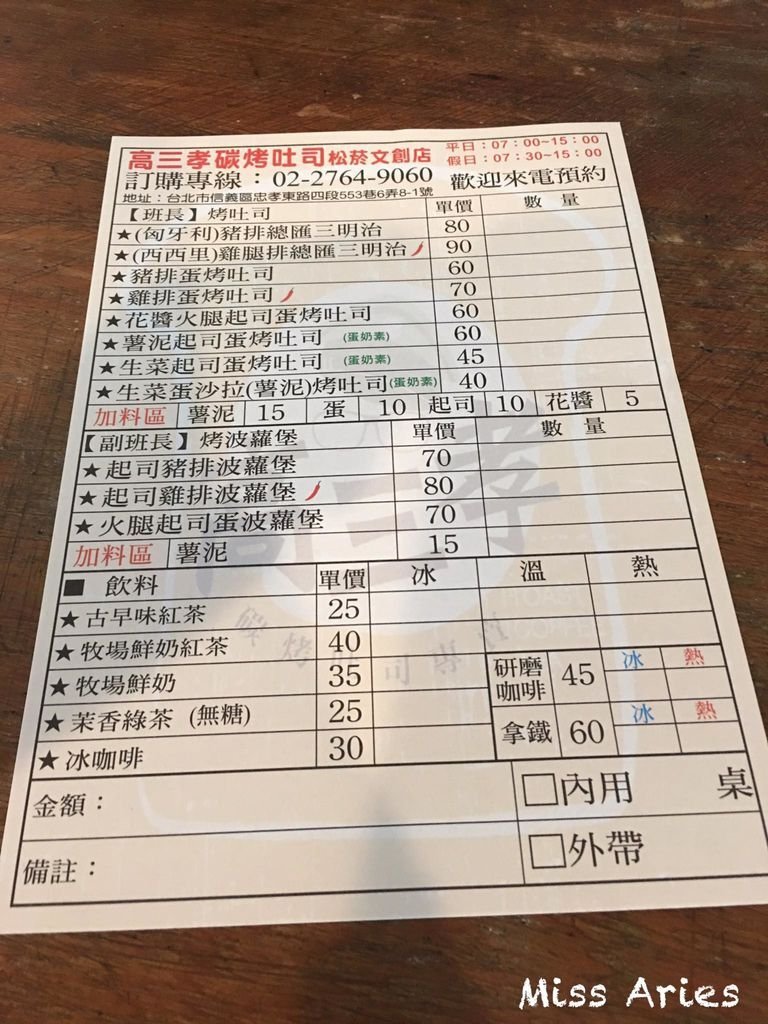 高三孝碳烤吐司松菸文創店
平日：07：00~15：00
假日：07：30~15：00
訂購專線：02-2764-9060 歡迎來電預約
地址：台北市信義區忠孝東路四段553巷6弄8-1號
【班長】烤吐司 單價 數 量
★(匈牙利)豬排總匯三明治 80
★(西西里)雞腿排總匯三明治 90
★豬排蛋烤吐司 60
★雞排蛋烤吐司 70
★花醬火腿起司蛋烤吐司 60
★薯泥起司蛋烤吐司 (蛋奶素) 60
★生菜起司蛋烤吐司 (蛋奶素) 45
★生菜蛋沙拉(薯泥)烤吐司(蛋奶素) 40
加料區 薯泥 15 蛋 10 起司 10 花醬 5
【副班長】烤波蘿堡 單價 數 量
★起司豬排波蘿堡 70
★起司雞排波蘿堡 80
★火腿起司蛋波蘿堡 70
加料區 薯泥 15
■ 飲料 單價 冰 溫 熱
★古早味紅茶 25
★牧場鮮奶紅茶 40
★牧場鮮奶 35
★茉香綠茶 (無糖) 25
★冰咖啡 30
研磨咖啡 45 冰 熱
拿鐵 60 冰 熱
金額：
□內用 桌
備註：
□外帶
高三孝
Miss Aries